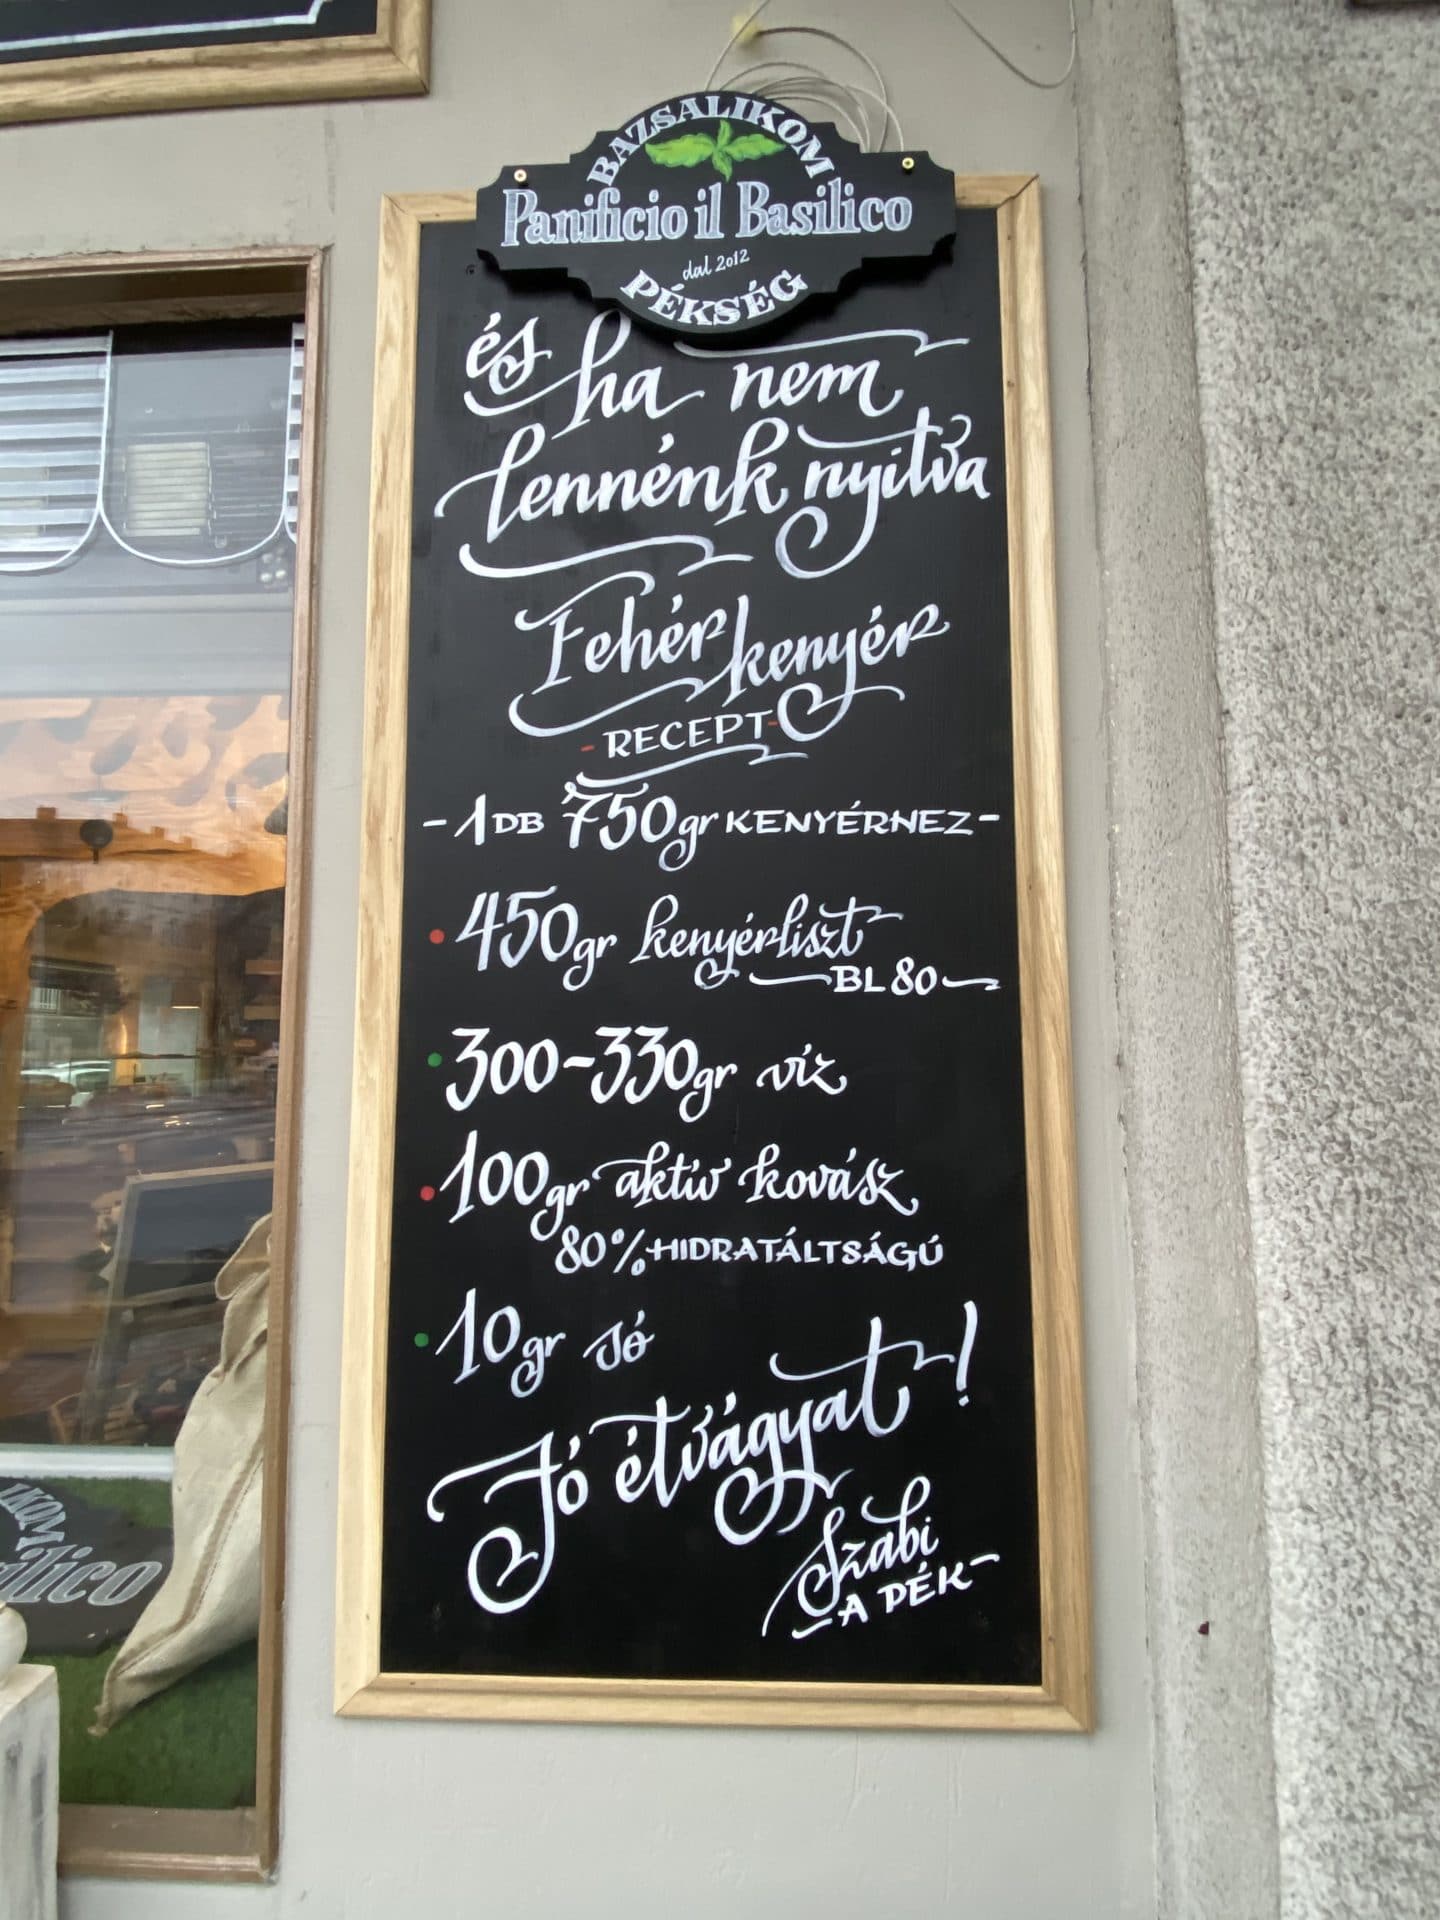 BAZSALIKOM
Panificio il Basilico
dal 2012
PÉKSÉG
és ha nem
lennénk nyitva
Fehér kenyér
- RECEPT -
- 1 DB 750gr KENYÉRHEZ -
• 450gr kenyérliszt
BL80
• 300-330gr víz
• 100gr aktív kovász
80% HIDRATÁLTSÁGÚ
• 10gr só
Jó étvágyat!
Szabi
A PÉK
IKOM
ilico